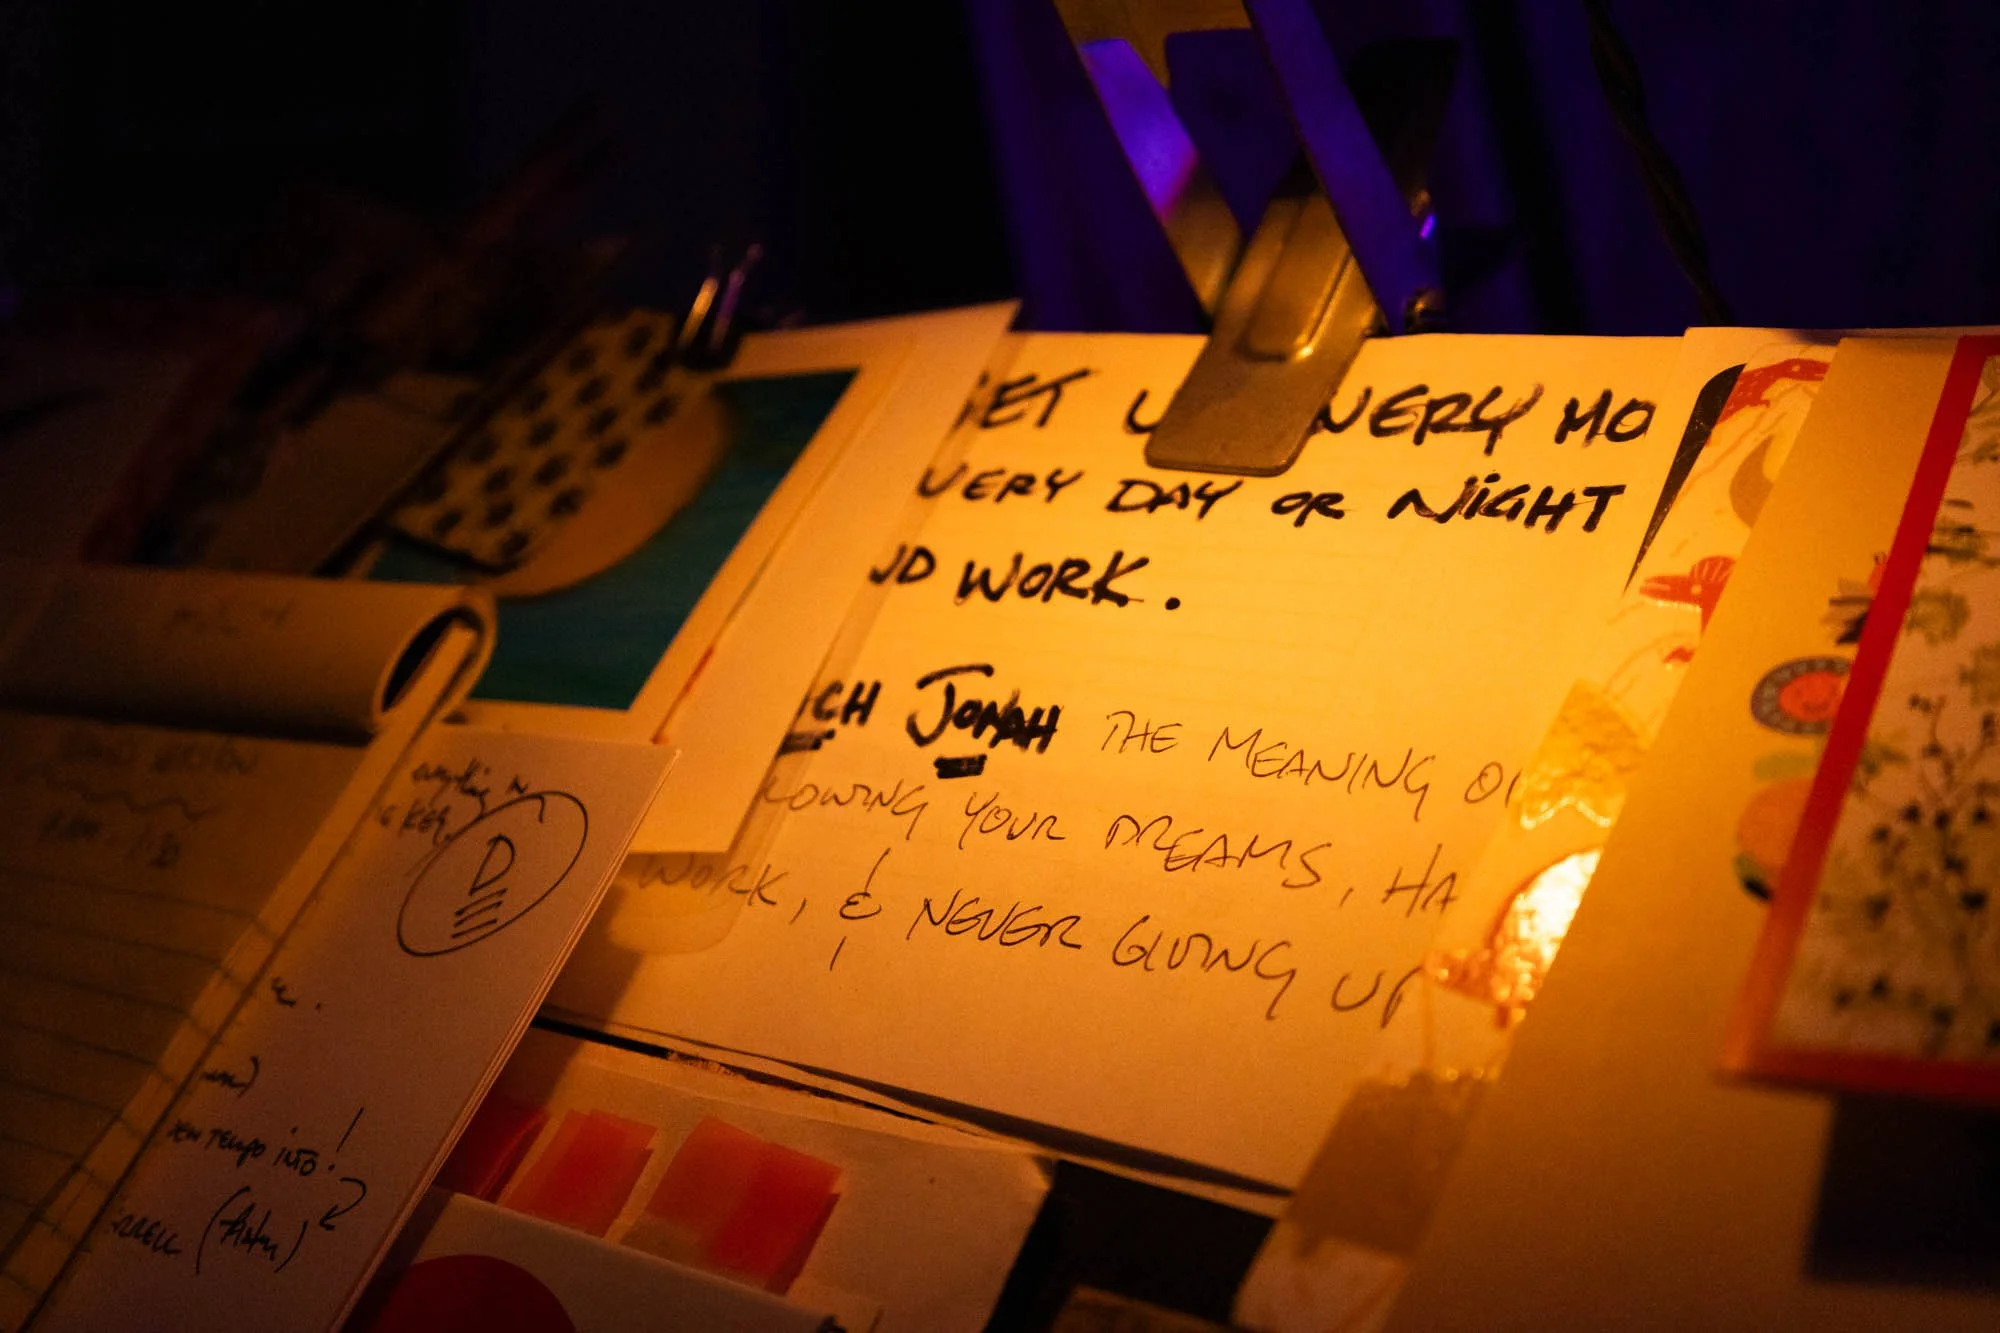 ET U VERY MO
VERY DAY OR NIGHT
ND WORK.
CH JONAH THE MEANING O
LOWING YOUR DREAMS, HA
WORK, & NEVER GIVING UP
everything in
KEY,
D
TEMPO INTO!